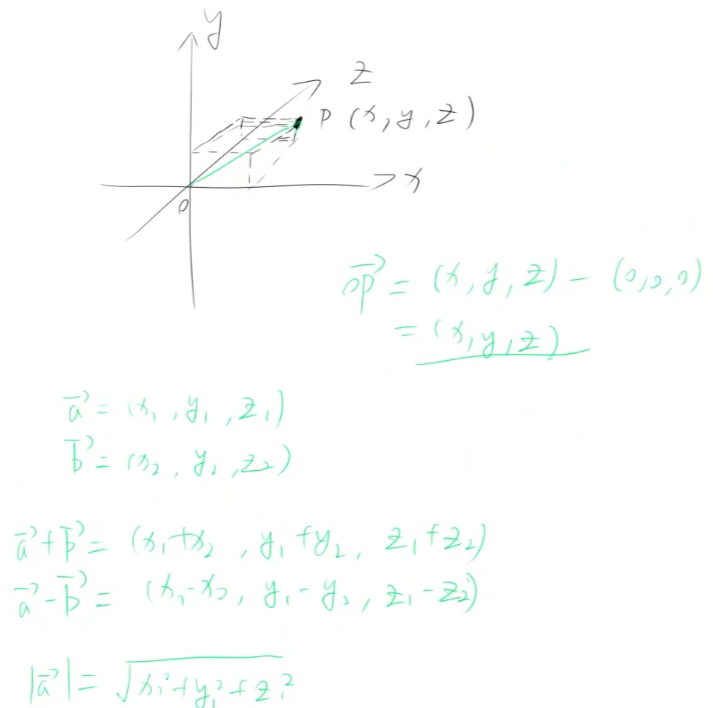 y
z
P (x, y, z)
x
O
\vec{OP} = (x, y, z) - (0, 0, 0)
= (x, y, z)
\vec{a} = (x₁, y₁, z₁)
\vec{b} = (x₂, y₂, z₂)
\vec{a} + \vec{b} = (x₁+x₂, y₁+y₂, z₁+z₂)
\vec{a} - \vec{b} = (x₁-x₂, y₁-y₂, z₁-z₂)
|\vec{a}| = √(x₁²+y₁²+z₁²)